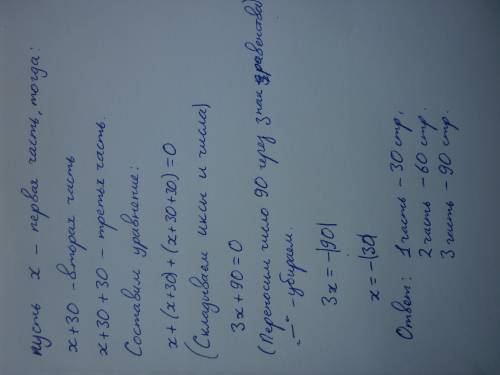 пусть x - первая часть, тогда:
x+30 - вторая часть
x+30+30 - третья часть.
Составим уравнение:
x+(x+30)+(x+30+30)=0
(Складываем иксы и числа)
3x+90=0
(Переносим число 90 через знак равенства)
"—" - убираем.
3x=-|90|
x=-|30|
Ответ: 1 часть - 30 стр,
2 часть - 60 стр.
3 часть - 90 стр.